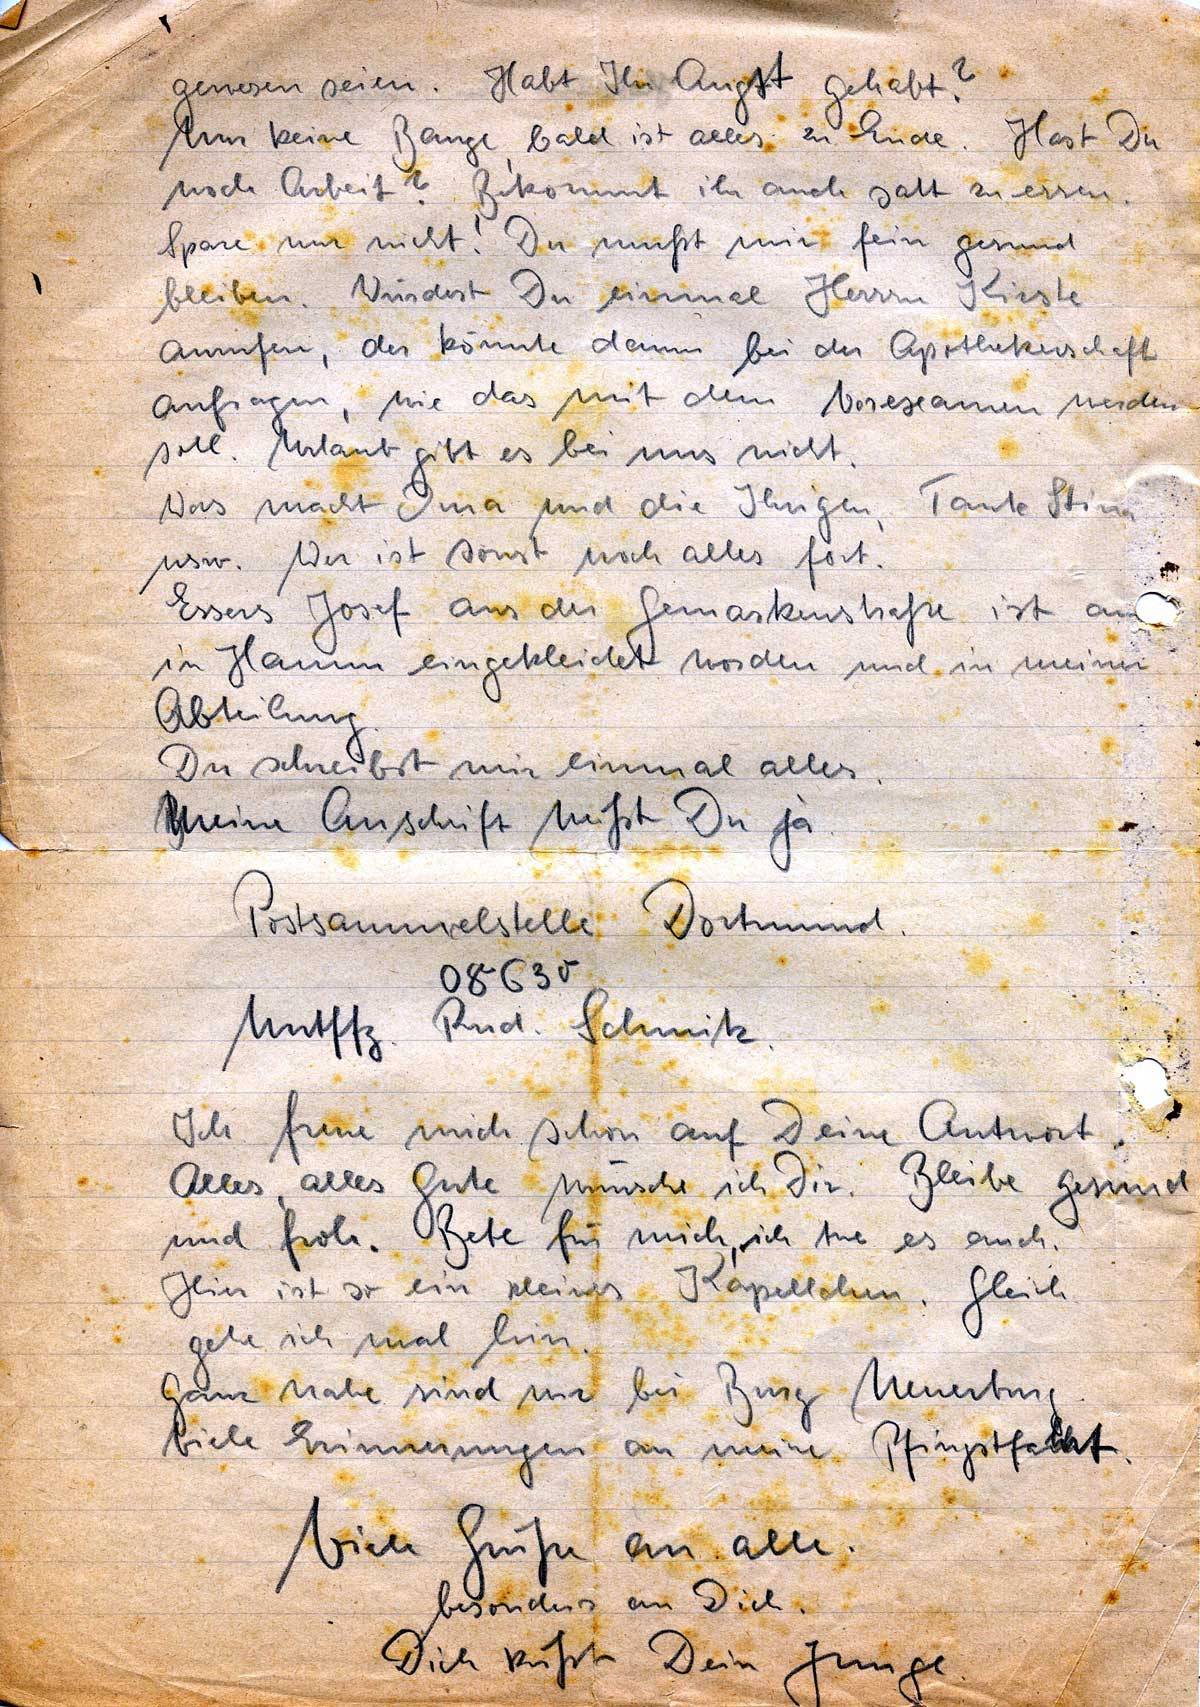 gewesen seien. Habt Ihr Angst gehabt?
Nur keine Bange, bald ist alles zu Ende. Hast Du
noch Arbeit? Bekommt ihr auch satt zu essen.
Spare nur nicht! Du mußt mir fein gesund
bleiben. Würdest Du einmal Herrn Kirste
anrufen, der könnte dann bei der Apothekerschaft
anfragen, wie das mit dem Vorexamen werden
soll. Urlaub gibt es bei uns nicht.
Was macht Oma und die Ihrigen, Tante Stina
usw. Wer ist sonst noch alles fort.
Essers Josef aus der Gemarkenstraße ist
in Hamm eingekleidet worden und in meiner
Abteilung.
Du schreibst mir einmal alles.
Meine Anschrift weißt Du ja.
Postsammelstelle Dortmund.
08630
Utffz. Rud. Schmitz.
Ich freue mich schon auf Deine Antwort.
Alles, alles Gute wünsche ich Dir. Bleibe gesund
und froh. Bete für mich, ich tue es auch.
Hier ist so ein kleines Kapellchen. Gleich
gehe ich mal hin.
Ganz nahe sind wir bei Burg Neuerburg.
Viele Erinnerungen an meine Pfingstfahrt.
Viele Grüße an alle.
besonders an Dich.
Dich küßt Dein Junge.